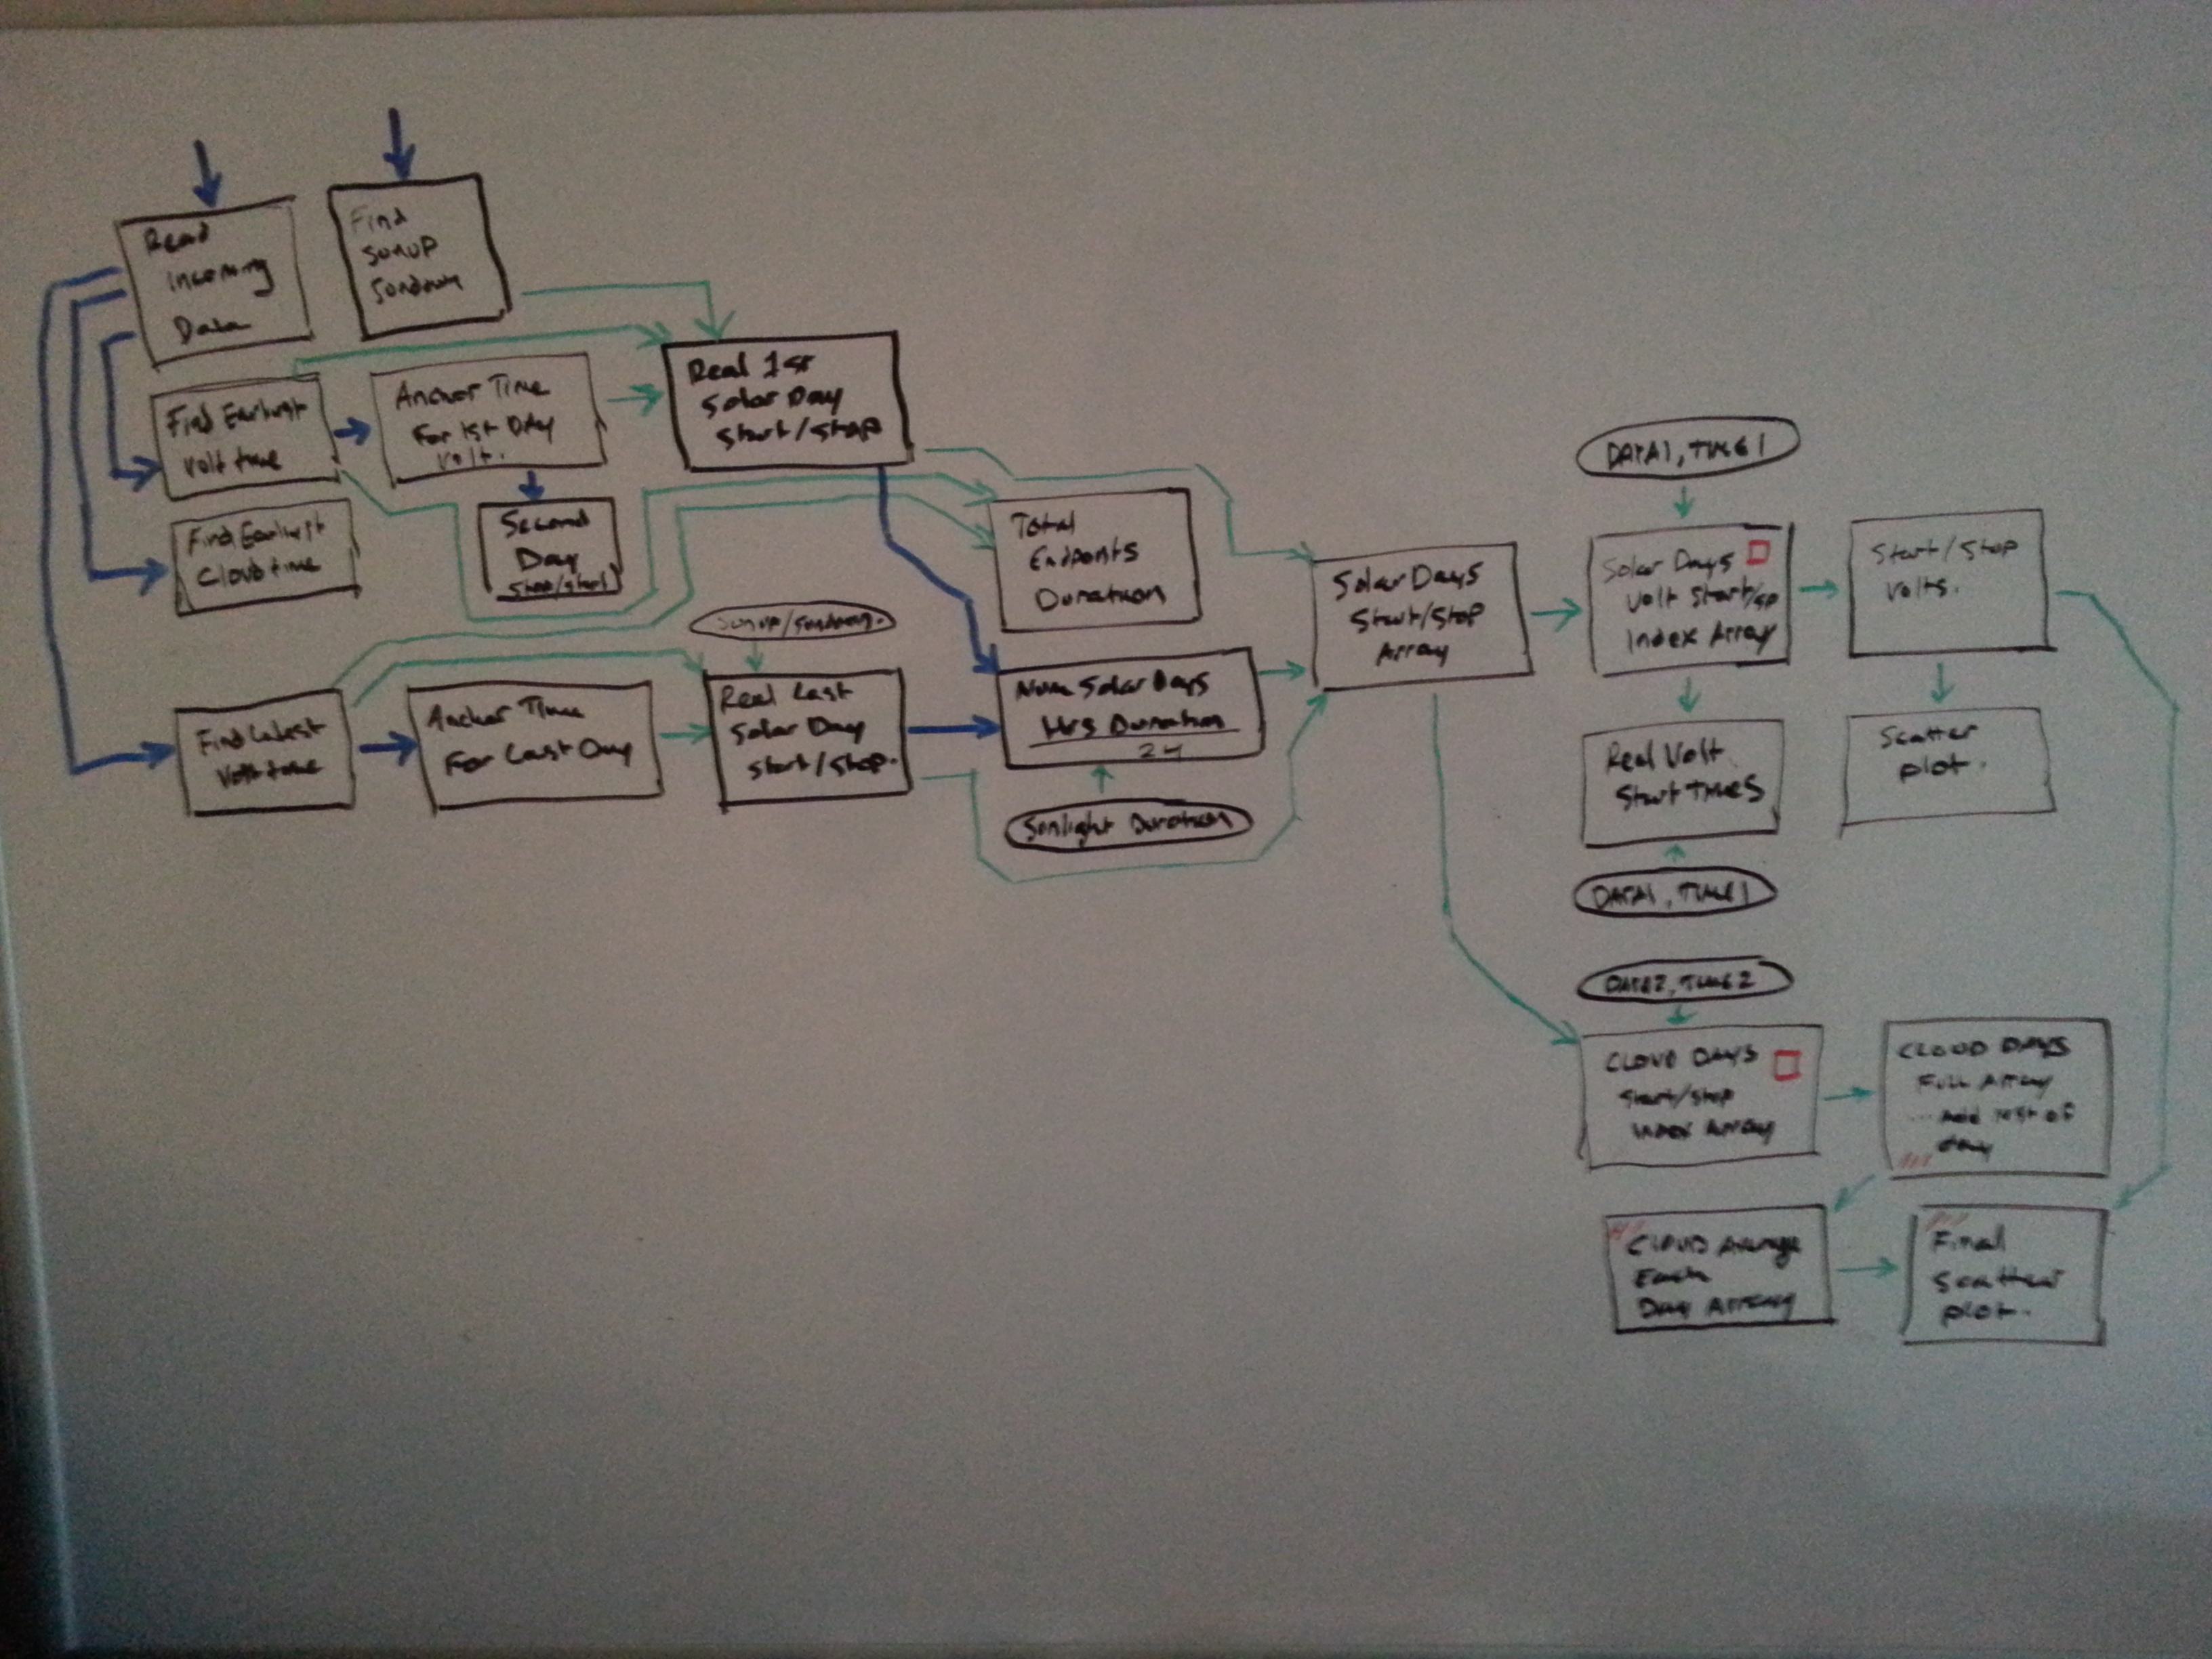 Read
Incoming
Data
Find
Sunup
Sundown
Find Earliest
Volt time
Anchor Time
For 1st Day
Volt.
Real 1st
Solar Day
Start/Stop
Find Earliest
Cloud time
Second
Day
Stop/Start
Total
Endpoints
Duration
Sunup/Sundown.
Find Latest
Volt time
Anchor Time
For Last Day
Real Last
Solar Day
Start/Stop.
Num Solar Days
Hrs Duration
24
Sunlight Duration
Solar Days
Start/Stop
Array
DATA1, TIME1
Solar Days
Volt Start/Sp
Index Array
Start/Stop
Volts.
Real Volt
Start Times
Scatter
plot.
DATA1, TIME1
DATE2, TIME2
CLOUD DAYS
Start/Stop
Index Array
CLOUD DAYS
Full Array
... Add rest of
day
CLOUD Average
Each
Day Array
Final
Scatter
plot.